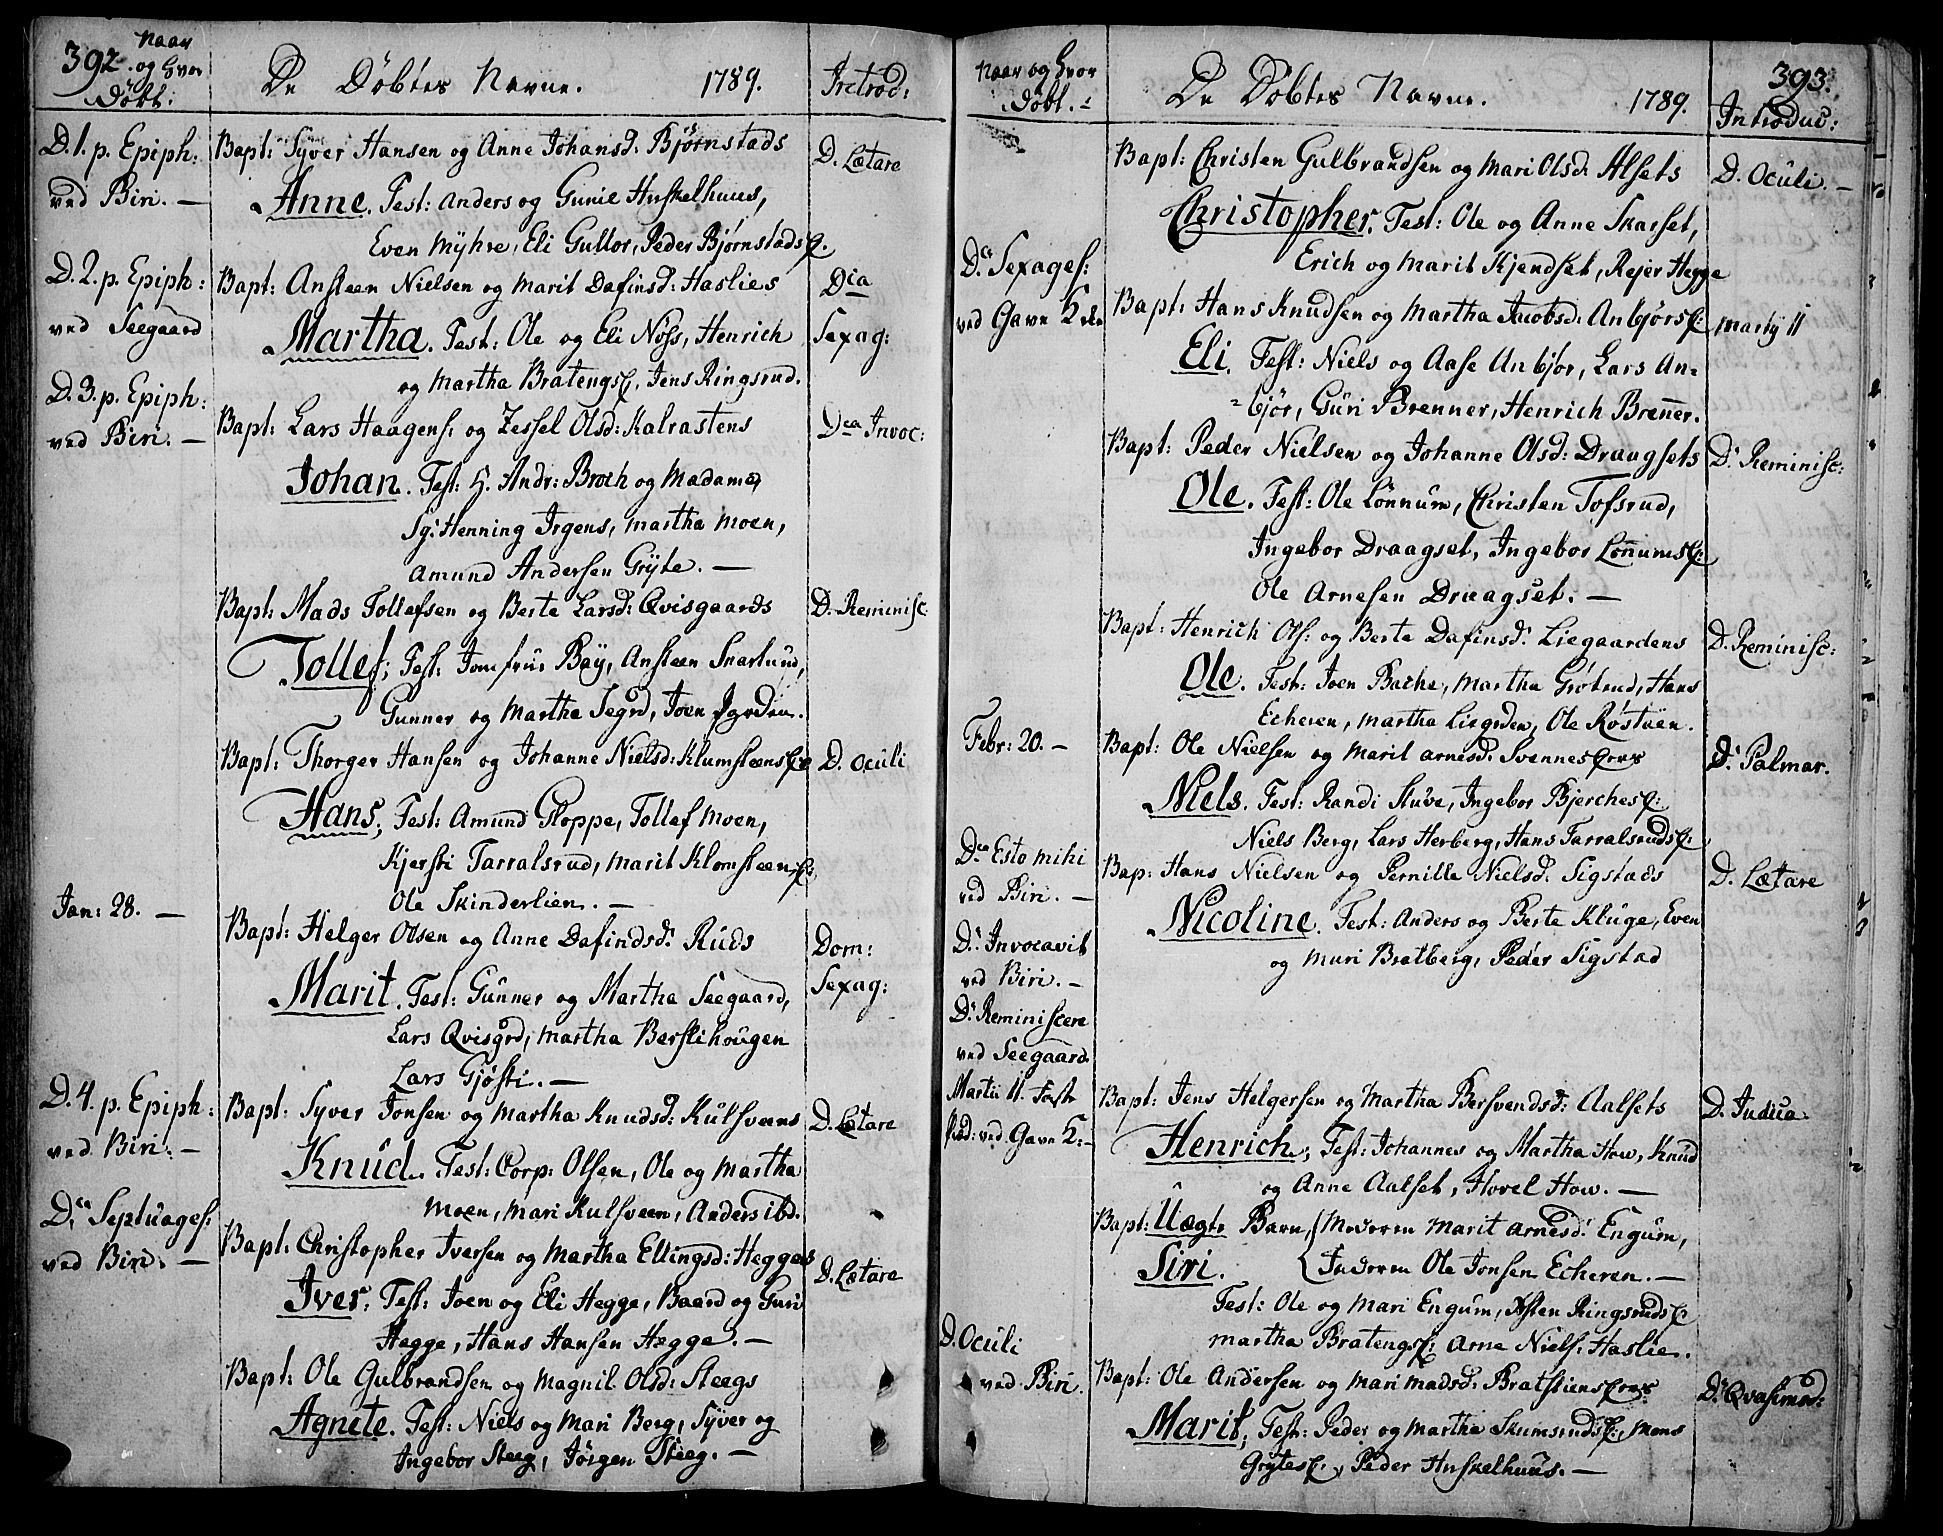 392. Naar og hvor Døbt:
De Døbtes Navne. 1789.
Introd:
D. 1. p. Epiph:
ved Biri. —
Bapt: Syver Hansen og Anne Johansd: Bjørnstads
D. Lætare
Anne. Test: Anders og Gunie Huskelhuus,
Even Myhre, Eli Gullor, Peder Bjørnstads
D. 2. p. Epiph:
ved Seegaard
Bapt: Ansteen Nielsen og Marit Dafinsd: Haslies
Dca Sexag:
Martha. Test: Ole og Eli Nöss, Henrich
og Martha Bratengs, Jens Ringsrud.
D. 3. p. Epiph:
ved Biri. —
Bapt: Lars Haagens: og Zessel Olsd: Kalrastens
Dca Invoc:
Johan. Test: H. Andr: Broch og Madame,
Sg: Henning Irgens, Martha Moen,
Amund Andersen Gryte. —
Bapt: Mads Tollefsen og Berte Larsd: Qvisgaards
D. Reminisc:
Tollef; Test: Jomfrue Bay, Ansteen Snartuud,
Gunner og Martha Segrd, Joen
Bapt: Thorger Hansen og Johanne Nielsd: Klumsteens
D. Oculi
Hans; Test: Amund Ploppe, Tollef Moen,
Kjersti Tarralsrud, Marit Klomsteens
Ole Skinderlien. —
Jan: 28. —
Bapt: Helger Olsen og Anne Dafindsd: Ruds
Dom: Sexag:
Marit. Test: Gunner og Martha Seegaard,
Lars Qvisgrd, Martha Berstihougen
Lars Gjøsti. —
D. 4. p. Epiph:
ved Biri. —
Bapt: Syver Jonsen og Martha Knudsd: Kulsveens
D. Lætare
Knud. Test: Corp: Olsen, Ole og Martha
Moen, Mari Kulsveen, Anders ibd.
D. Septuages:
ved Biri. —
Bapt: Christopher Iversen og Martha Ellingsd: Hegges
D. Lætare
Iver; Test: Joen og Eli Hegge, Baard og Guri
Hegge, Hans Hansen Hegge. —
Bapt: Ole Gulbrandsen og Magnil Olsd: Steegs
Agnete. Test: Niels og Mari Berg, Syver og
Ingebor Steeg, Jörgen Steeg. —
Naar og hvor Døbt. -
De Döbtes Navne. 1789.
393.
Introduc:
Bapt: Christen Gulbrandsen og Mari Olsd: Alsets
D. Oculi. —
Christopher. Test: Ole og Anne Skarset,
Erich og Marit Kjendset, Rejer Hegge
D. Sexages:
ved Gave K
Bapt: Hans Knudsen og Martha Jacobsd: Anbjørs
Marty 11
Eli. Test: Niels og Aase Anbjør, Lars An-
-björ, Guri Brenner, Henrich Brenner.
Bapt: Peder Nielsen og Johanne Olsd: Draagsets
D. Reminisc:
Ole. Test: Ole Lönnum, Christen Tofsrud,
Ingebor Draagset, Ingebor Lonnums
Ole Arnesen Draagset. —
Bapt: Henrich Ols: og Berte Dafinsd: Liegaardens
D. Reminisc:
Ole. Test: Joen Bache, Martha Grötrud, Hans
Echeren, Martha Liegrden, Ole Röstuen.
Febr: 20. —
Bapt: Ole Nielsen og Marit Arnesd: Svennes
D. Palmar.
Niels. Test: Randi Stuve, Ingebor Bjerches
Niels Berg, Lars Herberg, Hans Tarralsruds
D. Esto mihi
ved Biri. —
Bap: Hans Nielsen og Pernille Nielsd: Sigstads
D. Lætare
Nicoline. Test: Anders og Berte Kluge, Even
og Muri Bratberg, Peder Sigstad
D. Invocavit
ved Biri. —
D. Reminiscere
ved Seegaard
Martii 11. Faste
Præd: ved Gave K: —
Bapt: Jens Helgersen og Martha Bersvendsd: Aalsets
D. Judica
Henrich; Test: Johannes og Martha How, Knud
og Anne Aalset, Hovel How. —
Bapt: Uægte Barn, Moderen Marit Arnesd: Engum,
Siri. Faderen Ole Jonsen Echeren. —
Test: Ole og Mari Engum, Asten Ringsruds
Martha Bratengs: Arne Niels: Haslie.
D. Oculi
ved Biri.
Bapt: Ole Andersen og Mari Madsd: Bratstiens
D. Qvasimod:
Marit; Test: Peder og Martha Skumsruds, Mons
Grytes, Peder Huskelhuus. —